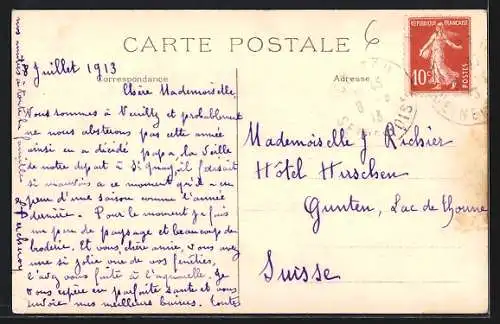 CARTE POSTALE
Correspondance
Adresse
6
RÉPUBLIQUE FRANÇAISE
10c
POSTES
8 Juillet 1913
Chère Mademoiselle,
Nous sommes à Neuilly et probablement
ne nous absterons pas cette année
ainsi en a décidé papa, la veille
de notre départ à St Quay, il faisait
si mauvais a ce moment qu'il a eu
peur d'une saison comme l'année
dernière. Pour le moment je fais
un peu de paysage et beaucoup de
broderie. Et vous, chère amie, vous avez
une si jolie vue de vos fenêtres,
l'avez vous faite à l'aquarelle. Je
vous espère en parfaite santé et vous
envoie mes meilleurs baisers. Toutes
nos amitiés à toute la famille
Mademoiselle J Richier
Hôtel Hirschen
Gunten, Lac de Thoune
Suisse